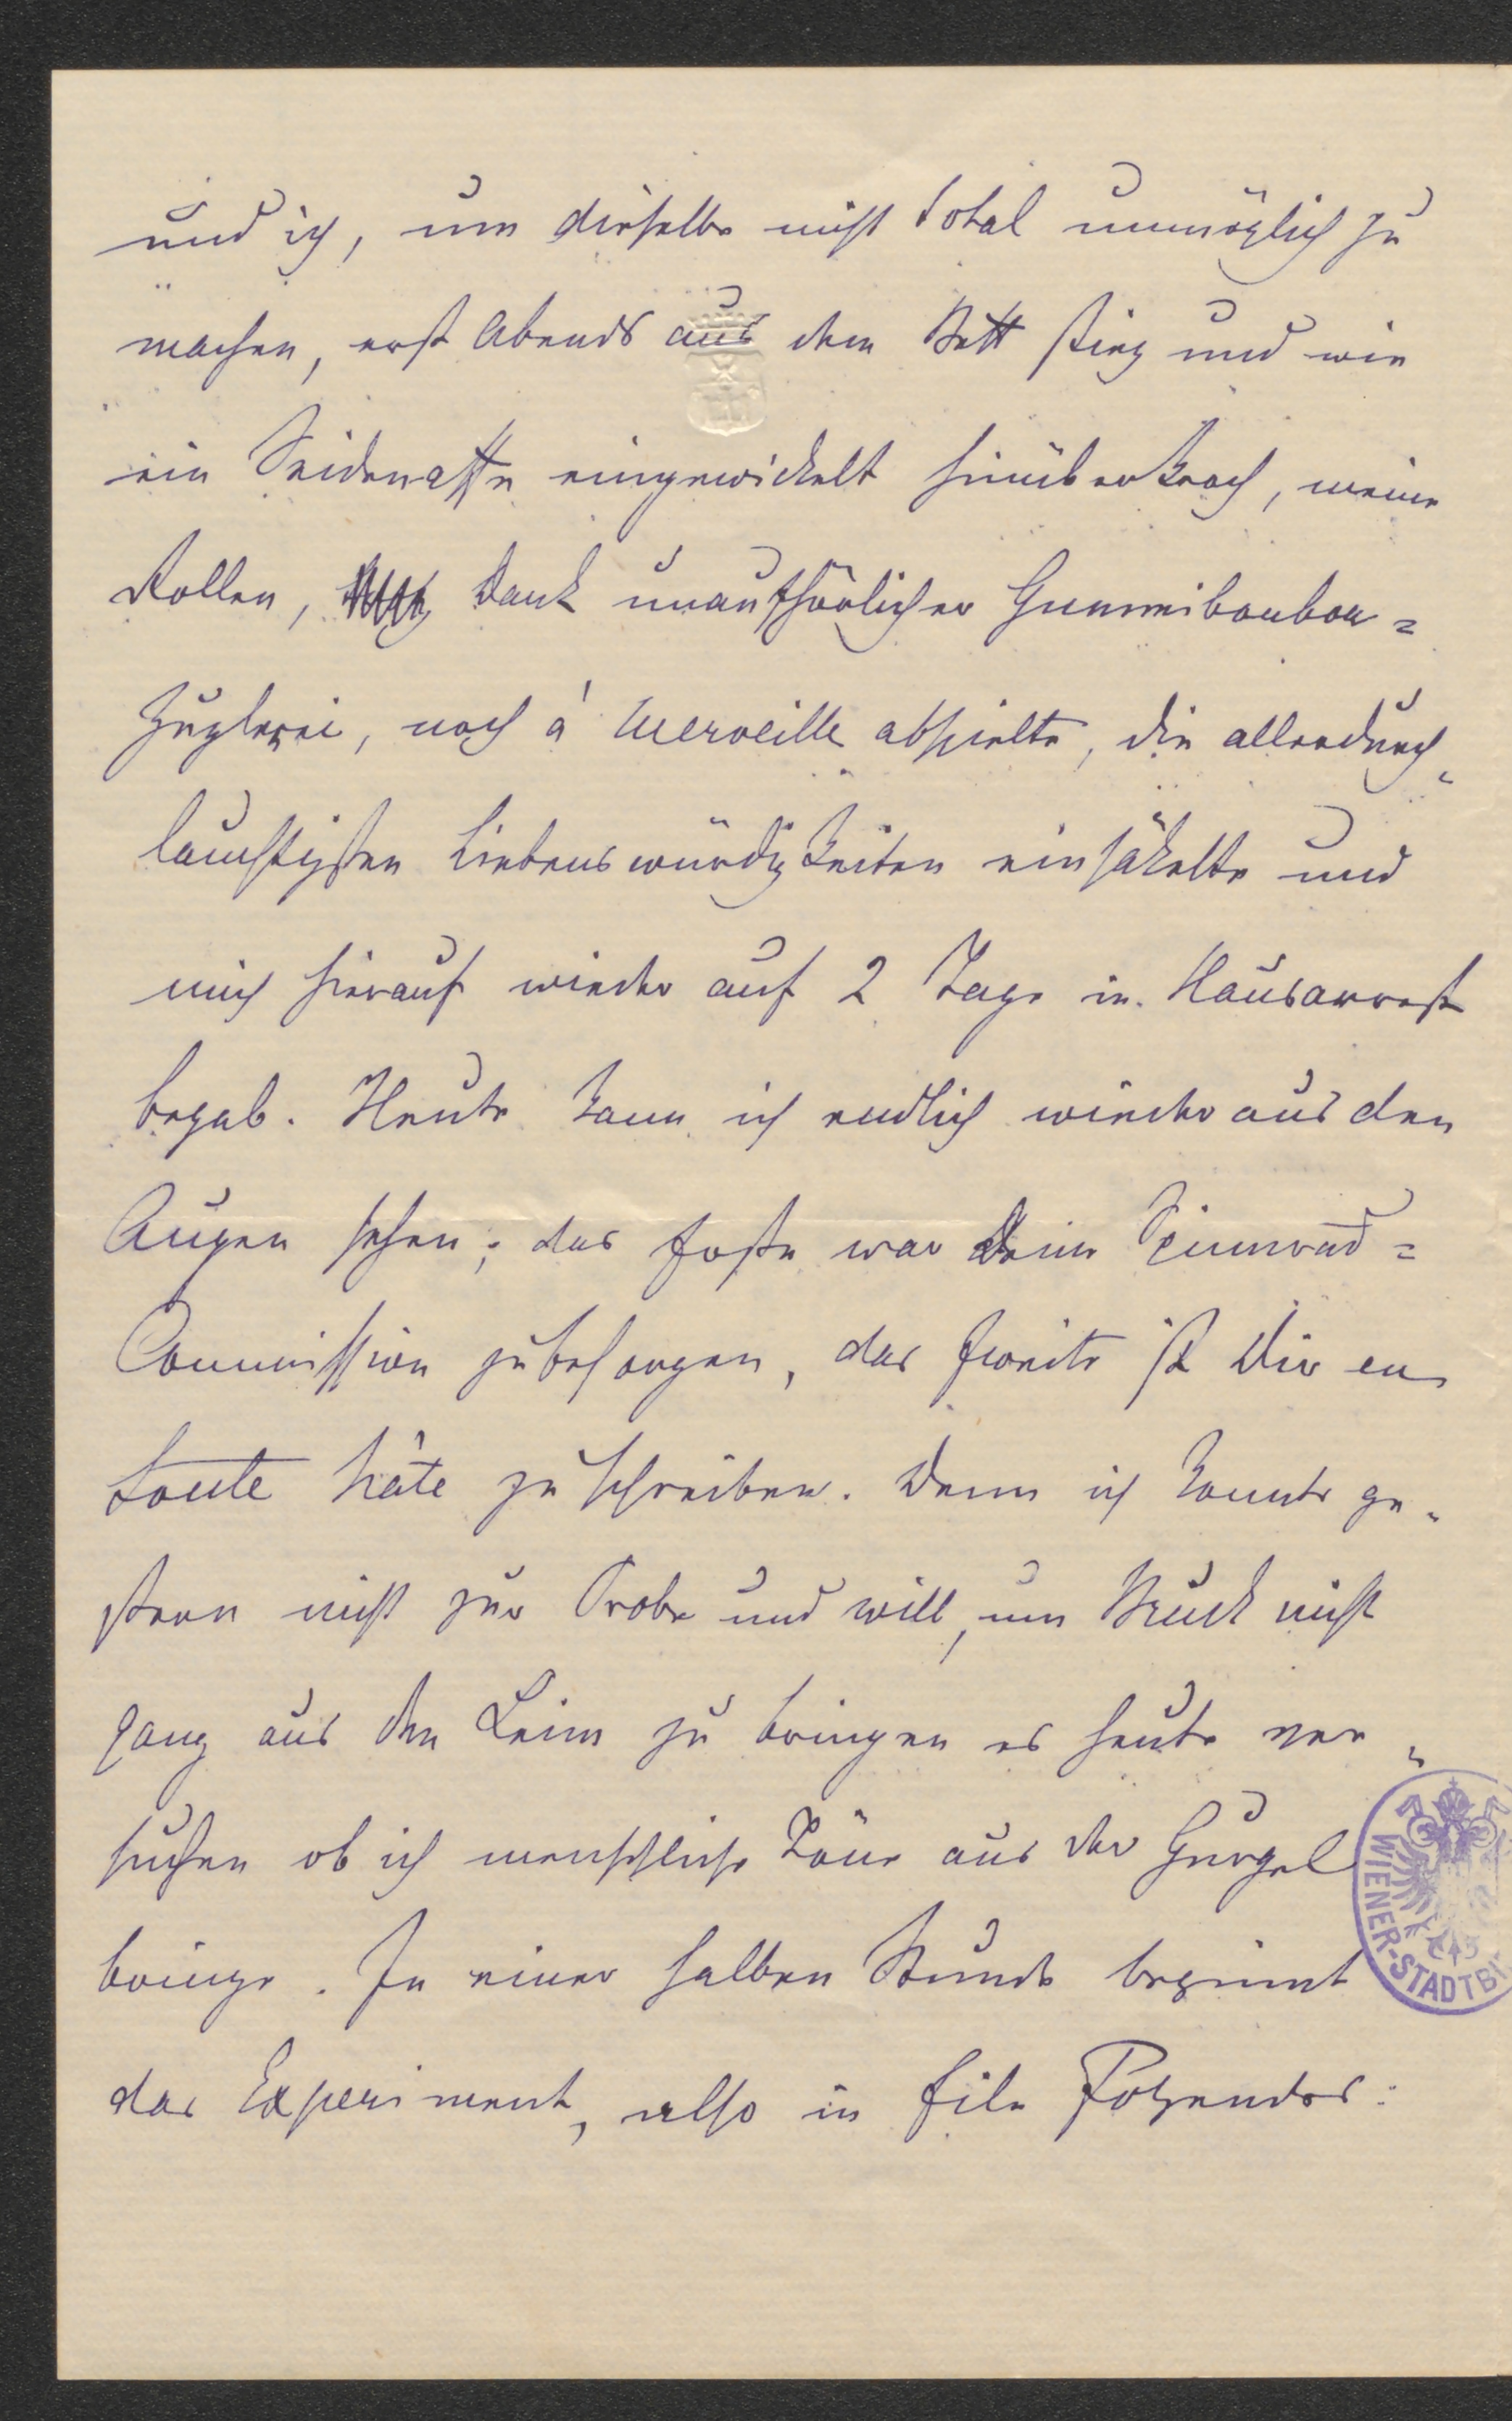 und ich, um dieselbe nicht total unmöglich zu
machen, erst Abends aus dem Bett stieg und wie
ein Seidenaffe eingewickelt hinüberkroch, meine
Rollen, Dank unaufhörlicher Gummibonbon=
Zuzlerei, noch à merveille abspielte, die allerdurch„
lauchtigsten Liebenswürdigkeiten einsäkelte und
mich hierauf wieder auf 2 Tage in Hausarrest
begab. Heute kann ich endlich wieder aus den
Augen sehen; das Erste war Deine Spinnrad=
Commission zu besorgen, das Zweite ist Dir en
toute hâte zu schreiben. Denn ich konnte ge„
stern nicht zur Probe und will, um Bruck nicht
ganz aus dem Leim zu bringen es heute ver„
suchen ob ich menschliche Töne aus der Gurgel
bringe. In einer halben Stunde beginnt
das Experiment, also in Eile Folgendes:
WIENER-STADTBI